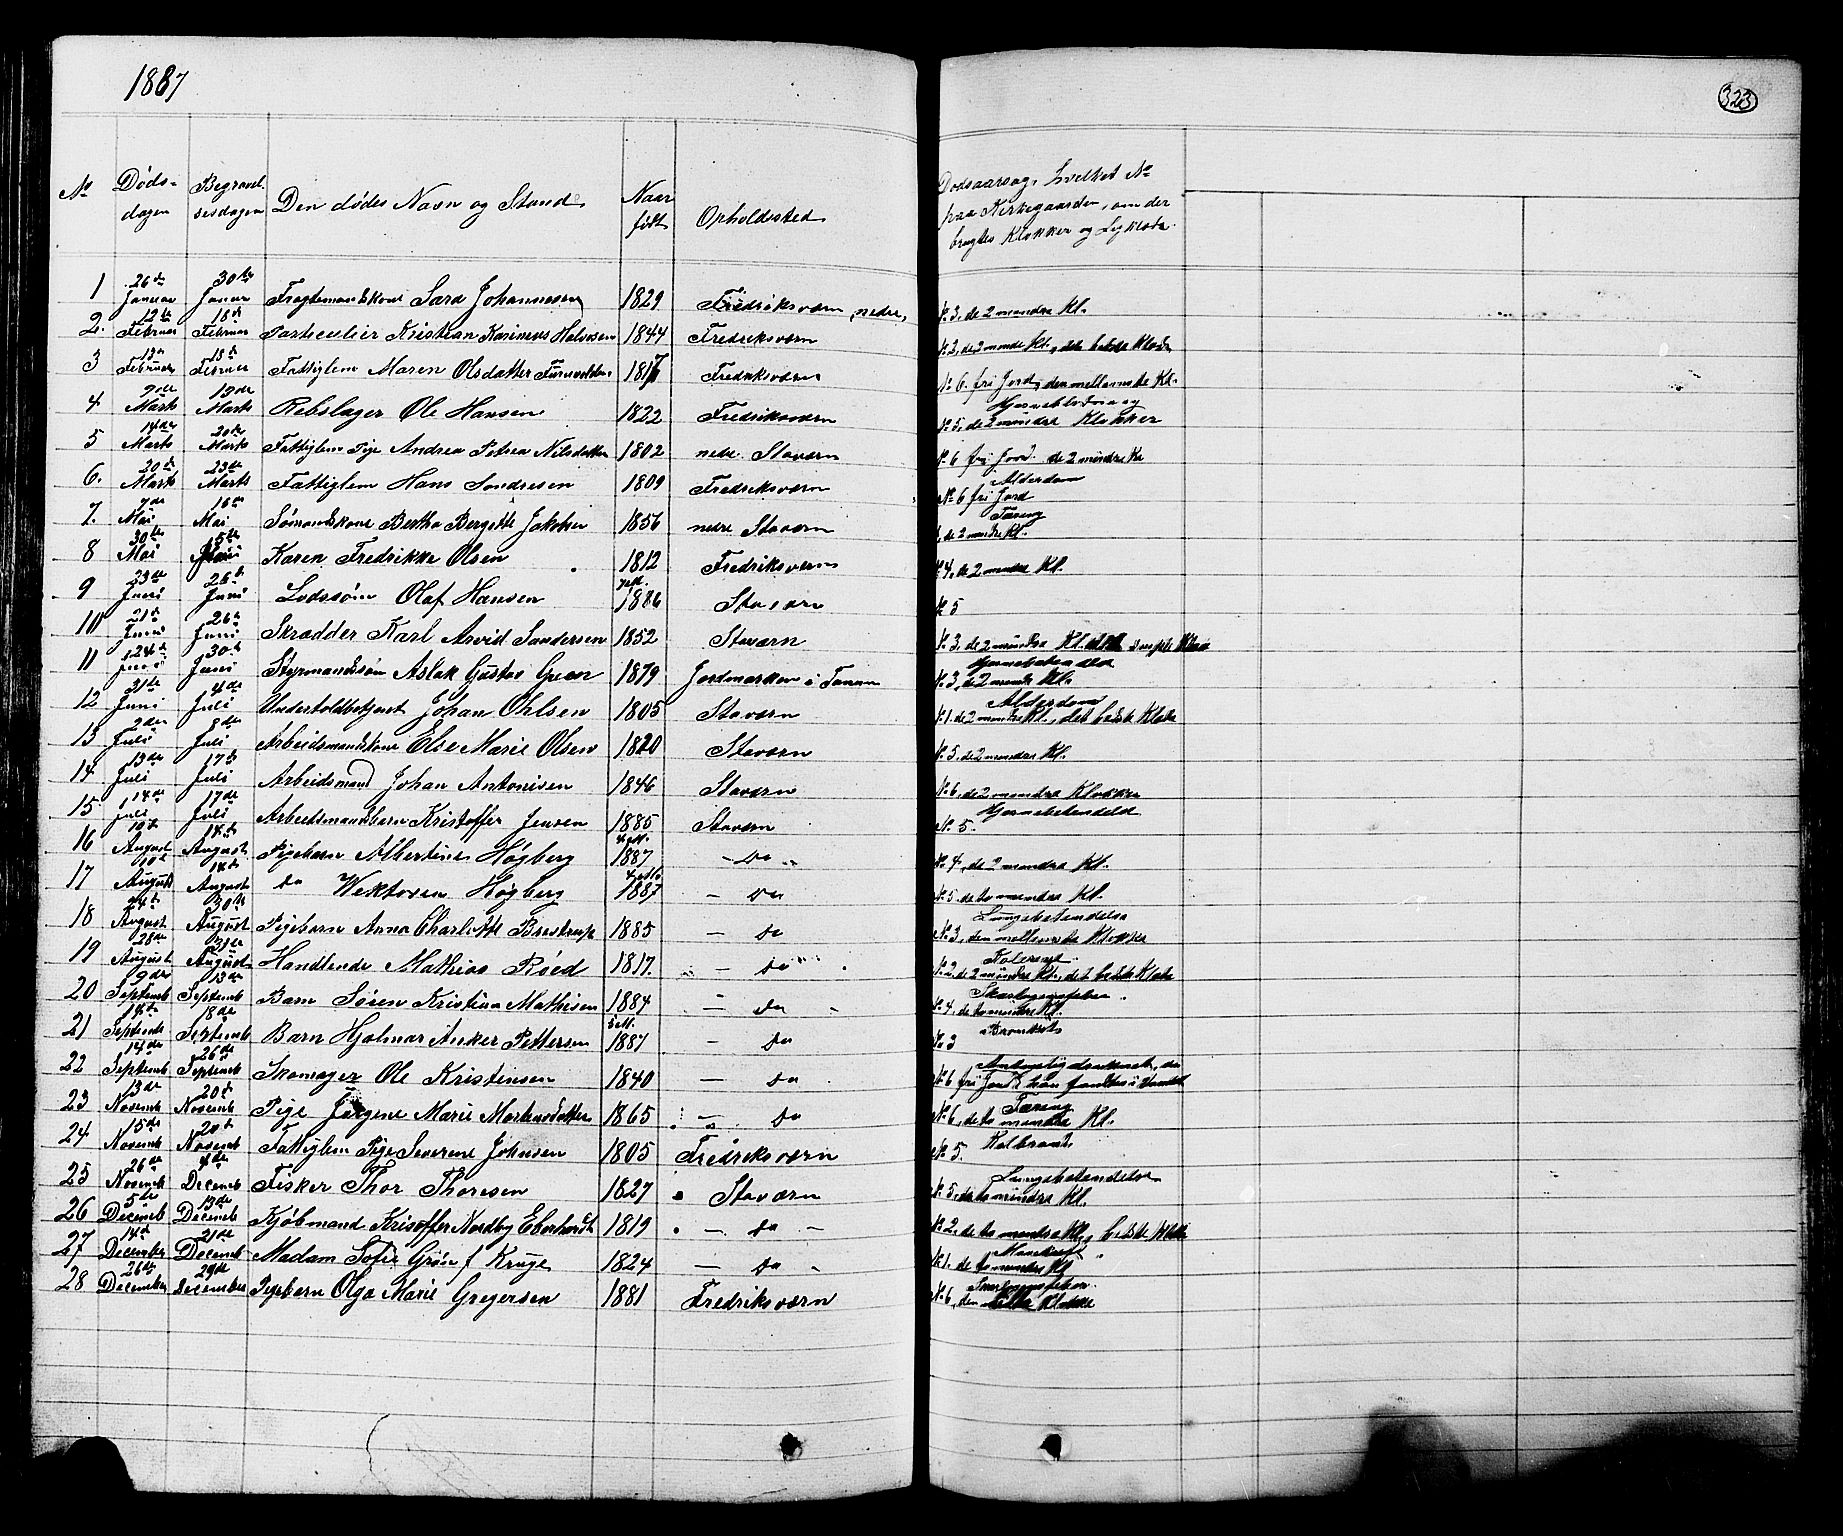 1887
323
No Døds- dagen Begravel sesdagen Den dødes Navn og Stand Naar født Opholdssted Dødsaarsag, hvilket No paa Kirkegaarden, om der brugtes Klokker og Ligklæde
1 26de Januar 30te Januar Fragtemandskone Sara Johannesen 1829 Fredriksværn nedre, No 3, de 2 mindre Kl.
2. 12te Februar 18de Februar Particulier Kristian 1844 Fredriksværn No 2, de 2 mindre Kl., det bedste Klæde
3 13de Februar 18de Februar Fattiglem Maren Olsdatter 1817 Fredriksværn No 6. fri Jord, den mellemste Kl.
4 9de Marts 19de Marts Rebslager Ole Hansen 1822 Fredriksværn No 5, de 2 mindre Klokker
5 14de Marts 20de Marts Fattiglem Pige Andrea Petrea Nilsdatter 1802 nedre Staværn No 6 fri Jord. de 2 mindre Kl
6. 20de Marts 23de Marts Fattiglem Hans Sondresen 1809 Fredriksværn Alderdom No 6 fri Jord
7. 7de Mai 16de Mai Sømandskone Bertha Bergitte Jakobsen 1856 nedre Staværn Tæring de 2 mindre Kl.
8 30te Mai 5te Karen Fredrikke Olsen 1812 Fredriksværn No 4, de 2 mindre Kl.
9 23de Juni 26de Juni Lodssøn Olaf Hansen 1886 Staværn No 5
10 21de Juni 26de Juni Skrædder Karl Arvid Sandersen 1852 Staværn No 3, de 2 mindre Kl.
11 24de Juni 30te Juni Styrmandssøn Aslak Gustav Green 1879 Jordmarken i Tanum Hjernebetændelse No 3, de 2 mindre Kl.
12 31te Juni 4de Juli Undertoldbetjent Johan Ohlsen 1805 Staværn Alderdom No 1. de 2 mindre Kl., det bedste Klæde
13 2den Juli 8de Juli Arbeidsmandskone Else Marie Olsen 1820 Staværn No 5. de 2 mindre Kl.
14. 13de Juli 17de Juli Arbeidsmand Johan Antonisen 1846 Staværn No 6, de 2 mindre Klokker
15 14de Juli 17de Juli Arbeidsmandsbarn Kristoffer Jensen 1885 Staværn Hjernebetændelse No 5.
16 10de August 14de August Pigebarn Albertine Høgberg 1887 - Do - No 4, de 2 mindre Kl.
17 10de August 14de August Do Wektoren Høgberg 1887 - Do No 5. de to mindre Kl.
18 24de August 30te August Pigebarn Anna Charlotte Brestrup 1885 - Do Lungebetændelse No 3, den mellemste Klokke
19 28de August 31te August Handlende Mathias Røed 1817. - Do No 2, de 2 mindre Kl., det bedste Klæde
20 9de Septemb 13de Septemb Barn Søren Kristian Mathisen 1884 - Do No 4, de to mindre Kl.
21 14de Septemb 18de Septemb Barn Hjalmar Anker Pettersen 1887 - Do Bronkit No 3
22 14de Septemb 26de Septemb Skomager Ole Kristensen 1840 - Do No 6 fri Jord han fandtes i Vandet
23 13de Novemb 20de Novemb Pige Jørgine Marie Mortensdatter 1865 - Do Tæring No 6, de to mindre Kl.
24 15de Novemb 20de Novemb Fattiglem Pige Severene Johnsen 1805 Fredriksværn Kolbrand No 5.
25 26de Novemb 4de Decemb Fisker Thor Thoresen 1827 Staværn Lungebetændelse No 5, de to mindre Kl.
26 5te Decemb 13de Decemb Kjøbmand Kristoffer Nordby Eberhardt 1819 - Do - No 2. de to mindre Kl, bedste Klæde
27 14de December 21de Decemb Madam Sofie Grøn f Kruge 1824 - Do - No 1. de to mindre Kl
28 26de December 29de December Pigebarn Olga Marie Gregersen 1881 Fredriksværn No 6, den Klokke